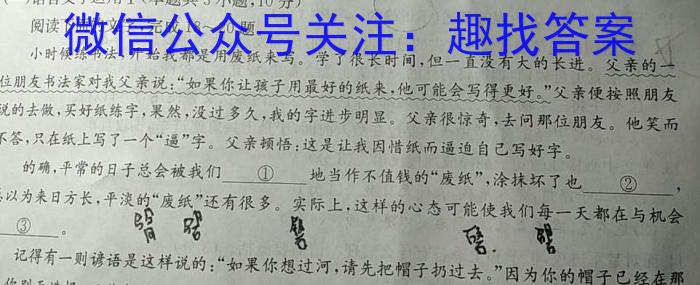 语言文字运用I(本题共3小题,10分)
阅读
完成18~20题
微信公众号关注:趣找答案
小时候练书法,开始我都是用废纸来写。学了很长时间,但一直没有大的长进。父亲的一
位朋友书法家对我父亲说:“如果你让孩子用最好的纸来,他可能会写得更好。”父亲便按照朋友
说的去做,买好纸练字,果然,没过多久,我的字进步明显。父亲很惊奇,去问那位朋友。他笑而
不答,只在纸上写了一个“逼”字。父亲顿悟:这是让我因惜纸而逼迫自己写好字。
的确,平常的日子总会被我们 ① 地当作不值钱的“废纸”,涂抹坏了也 ② ,
以为来日方长,平淡的“废纸”还有很多。实际上,这样的心态可能使我们每一天都在与机会
③ 。
记得有一则谚语是这样说的:“如果你想过河,请先把帽子扔过去。”因为你的帽子已经在那